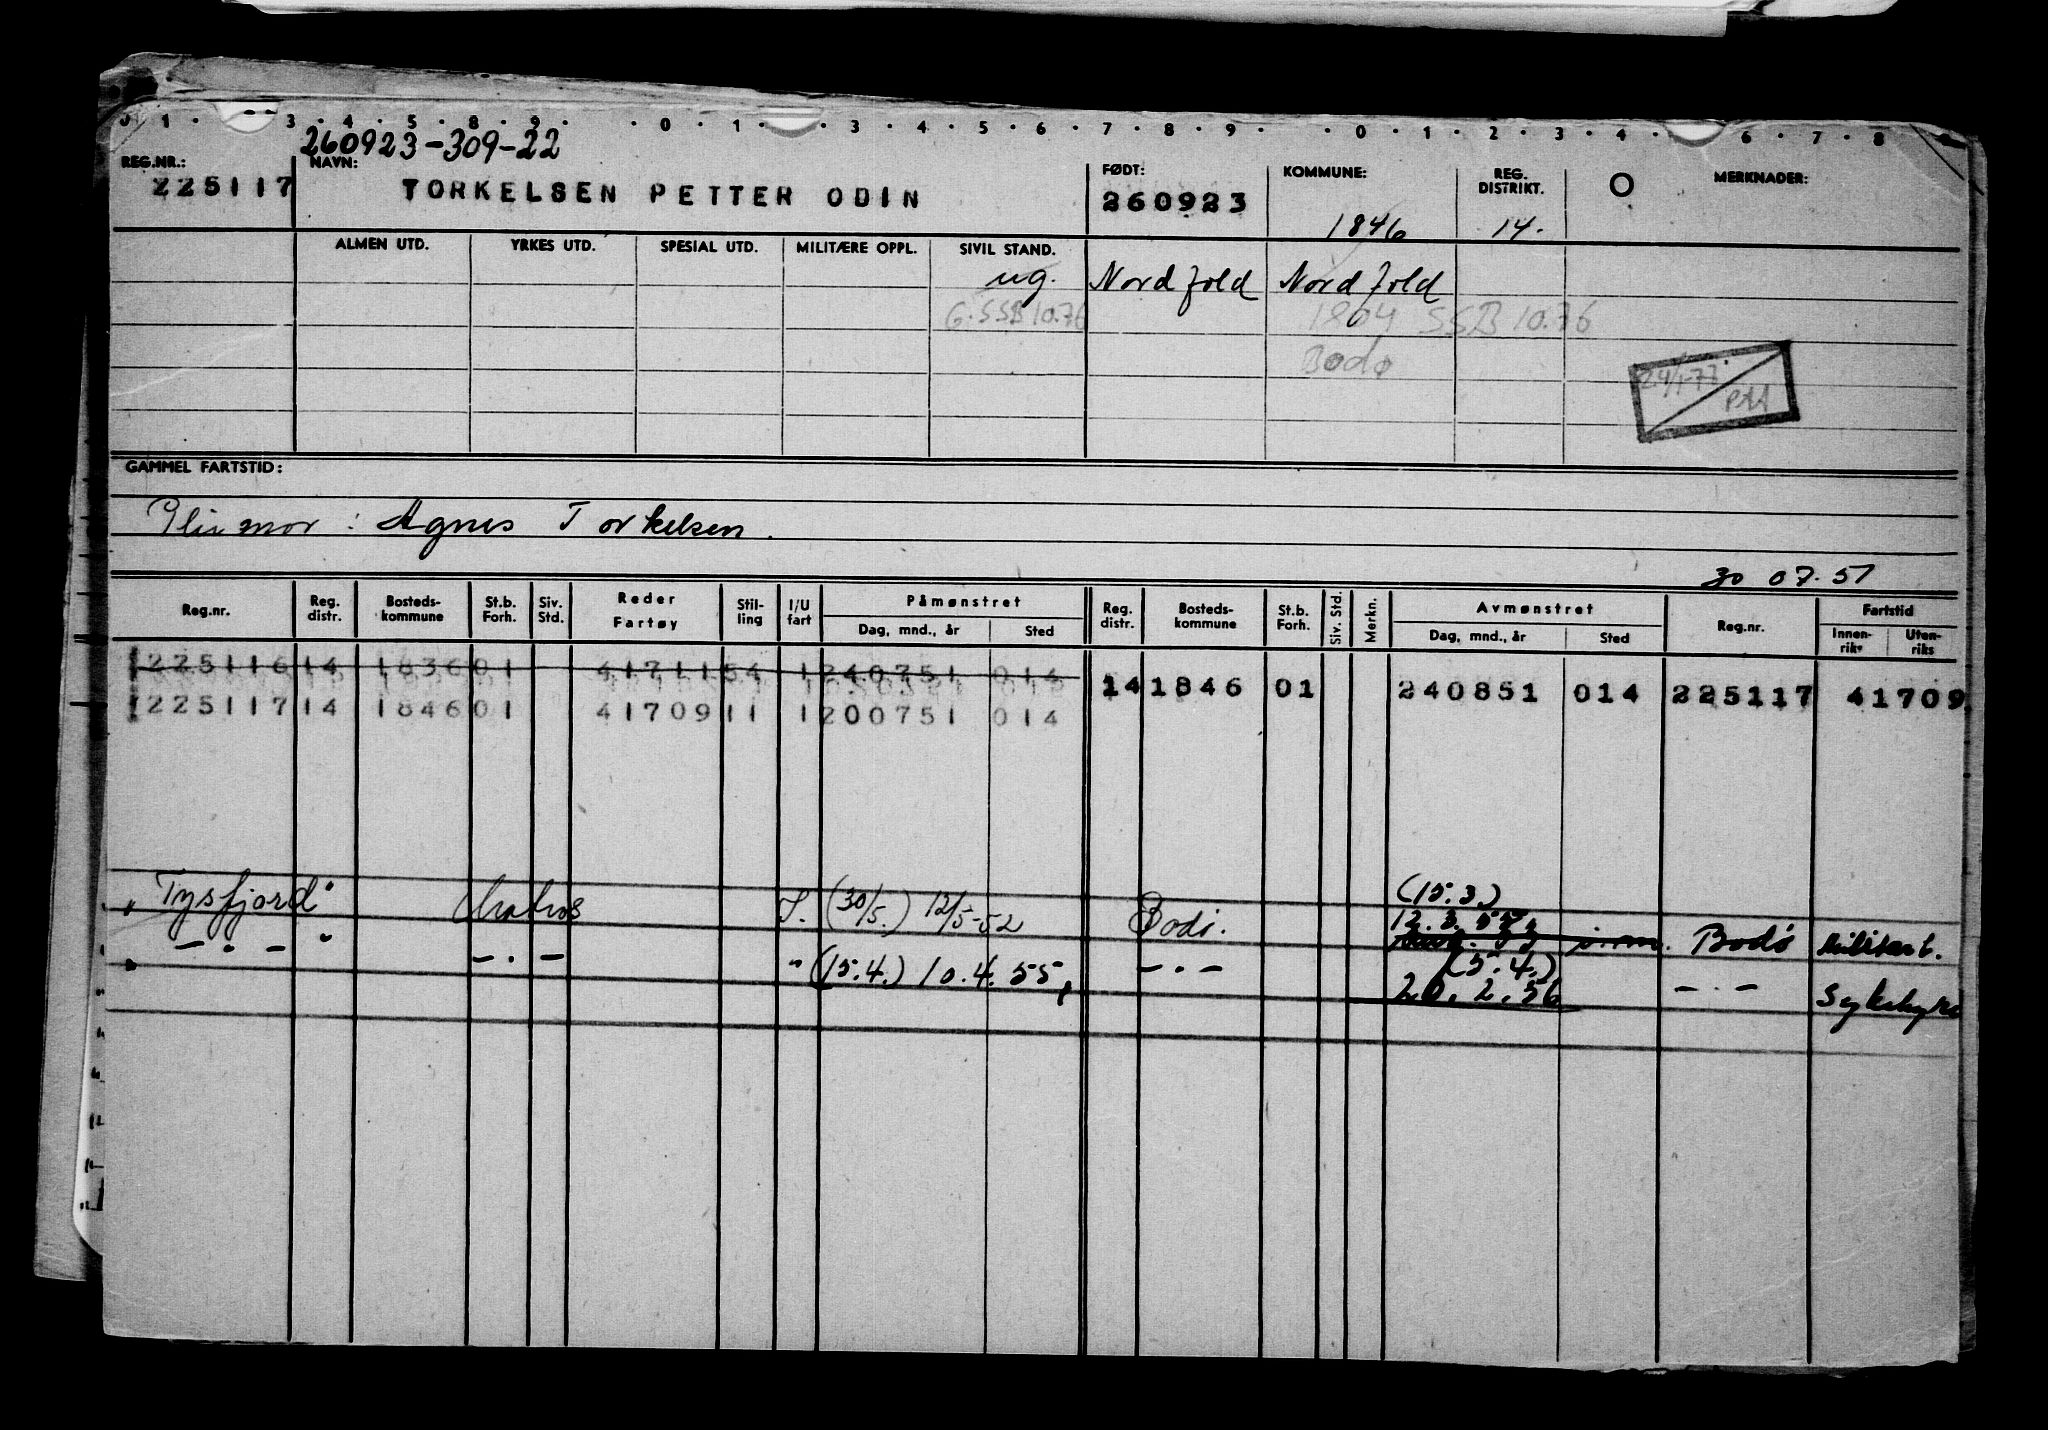 1 . 3 . 4 . 5 . 8 . 9 . . 0 . 1 . . 3 . 4 . 5 . 6 . 7 . 8 . 9 . . 0 . 1 . 2 . 3 . 4 . 6 . 7 . 8
260923-309-22
REG.NR.: NAVN: FØDT: KOMMUNE: REG. DISTRIKT. O MERKNADER:
225117 TORKELSEN PETTER ODIN 260923 1846 14.
ALMEN UTD. YRKES UTD. SPESIAL UTD. MILITÆRE OPPL. SIVIL STAND.
ug. Nordfold Nordfold
G. SSB 10.76 1804 SSB 10.76
Bodø
24/1-77
GAMMEL FARTSTID:
mor: Agnes Torkelsen.
30 07. 51
Reg.nr. Reg. distr. Bosteds- kommune St.b. Forh. Siv. Std. Reder Fartøy Stil- ling I/U fart Påmønstret Dag, mnd., år Sted Reg. distr. Bosteds- kommune St.b. Forh. Siv. Std. Merkn. Avmønstret Dag, mnd., år Sted Reg.nr. Fartstid Innen- riks Uten- riks
225116 14 1836 01 41711 54 1 240751 014
14 1846 01 240851 014 225117 41709
225117 14 1846 01 41709 11 1 200751 014
(15.3)
"Tysfjord" Matros I. (30/5.) 12/5-52 Bodø. 12.3. Bodø Militært.
— . — " — . — " (15.4.) 10.4.55, — . — (5.4.) 20.2.56 — . — Sykehyre